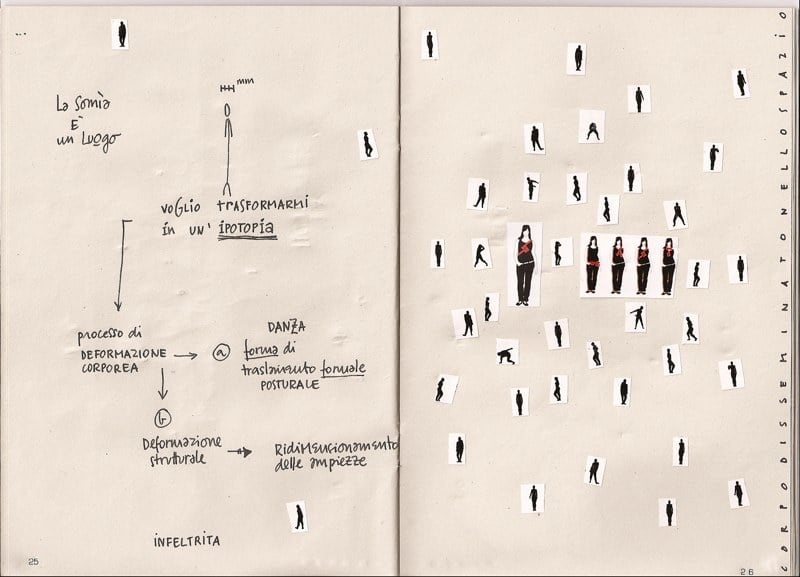 La Somìa
È
un Luogo
mm
VOGLIO trASFORMARMI
In UN' IPOTOPIA
processo di
DEFORMAZIONE
CORPOREA
a
DANZA
forma di
traslamento formale
POSTURALE
b
Deformazione
strutturale
RidiMENCIONAMENTO
delle ampiezze
INFELTRITA
25
CORPO DISSEMINATO NELLO SPAZIO
26